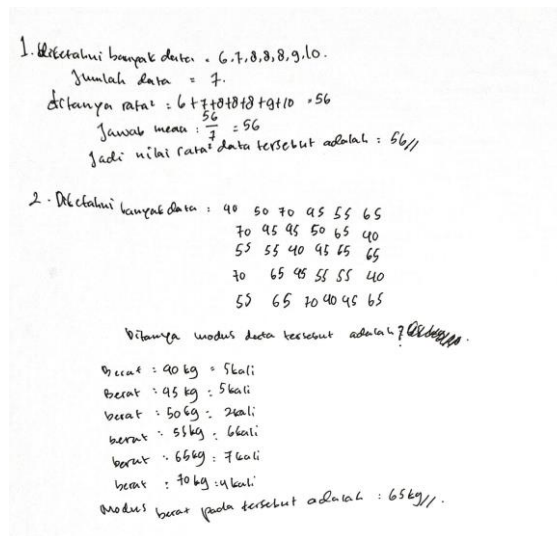 1. Diketahui banyak data = 6,7,8,8,8,9,10.
Jumlah data = 7.
ditanya rata² = 6+7+8+8+8+9+10 = 56
Jawab mean : 56/7 = 56
Jadi nilai rata² data tersebut adalah : 56//
2. Diketahui banyak data : 40 50 70 45 55 65
70 45 45 50 65 40
55 55 40 45 65 65
70 65 45 55 55 40
55 65 70 40 45 65
Ditanya modus data tersebut adalah?
Berat : 40 kg = 5 kali
Berat : 45 kg : 5 kali
berat : 50 kg : 2 kali
berat : 55 kg : 6 kali
berat : 65 kg : 7 kali
berat : 70 kg : 4 kali
modus berat pada tersebut adalah : 65 kg//.